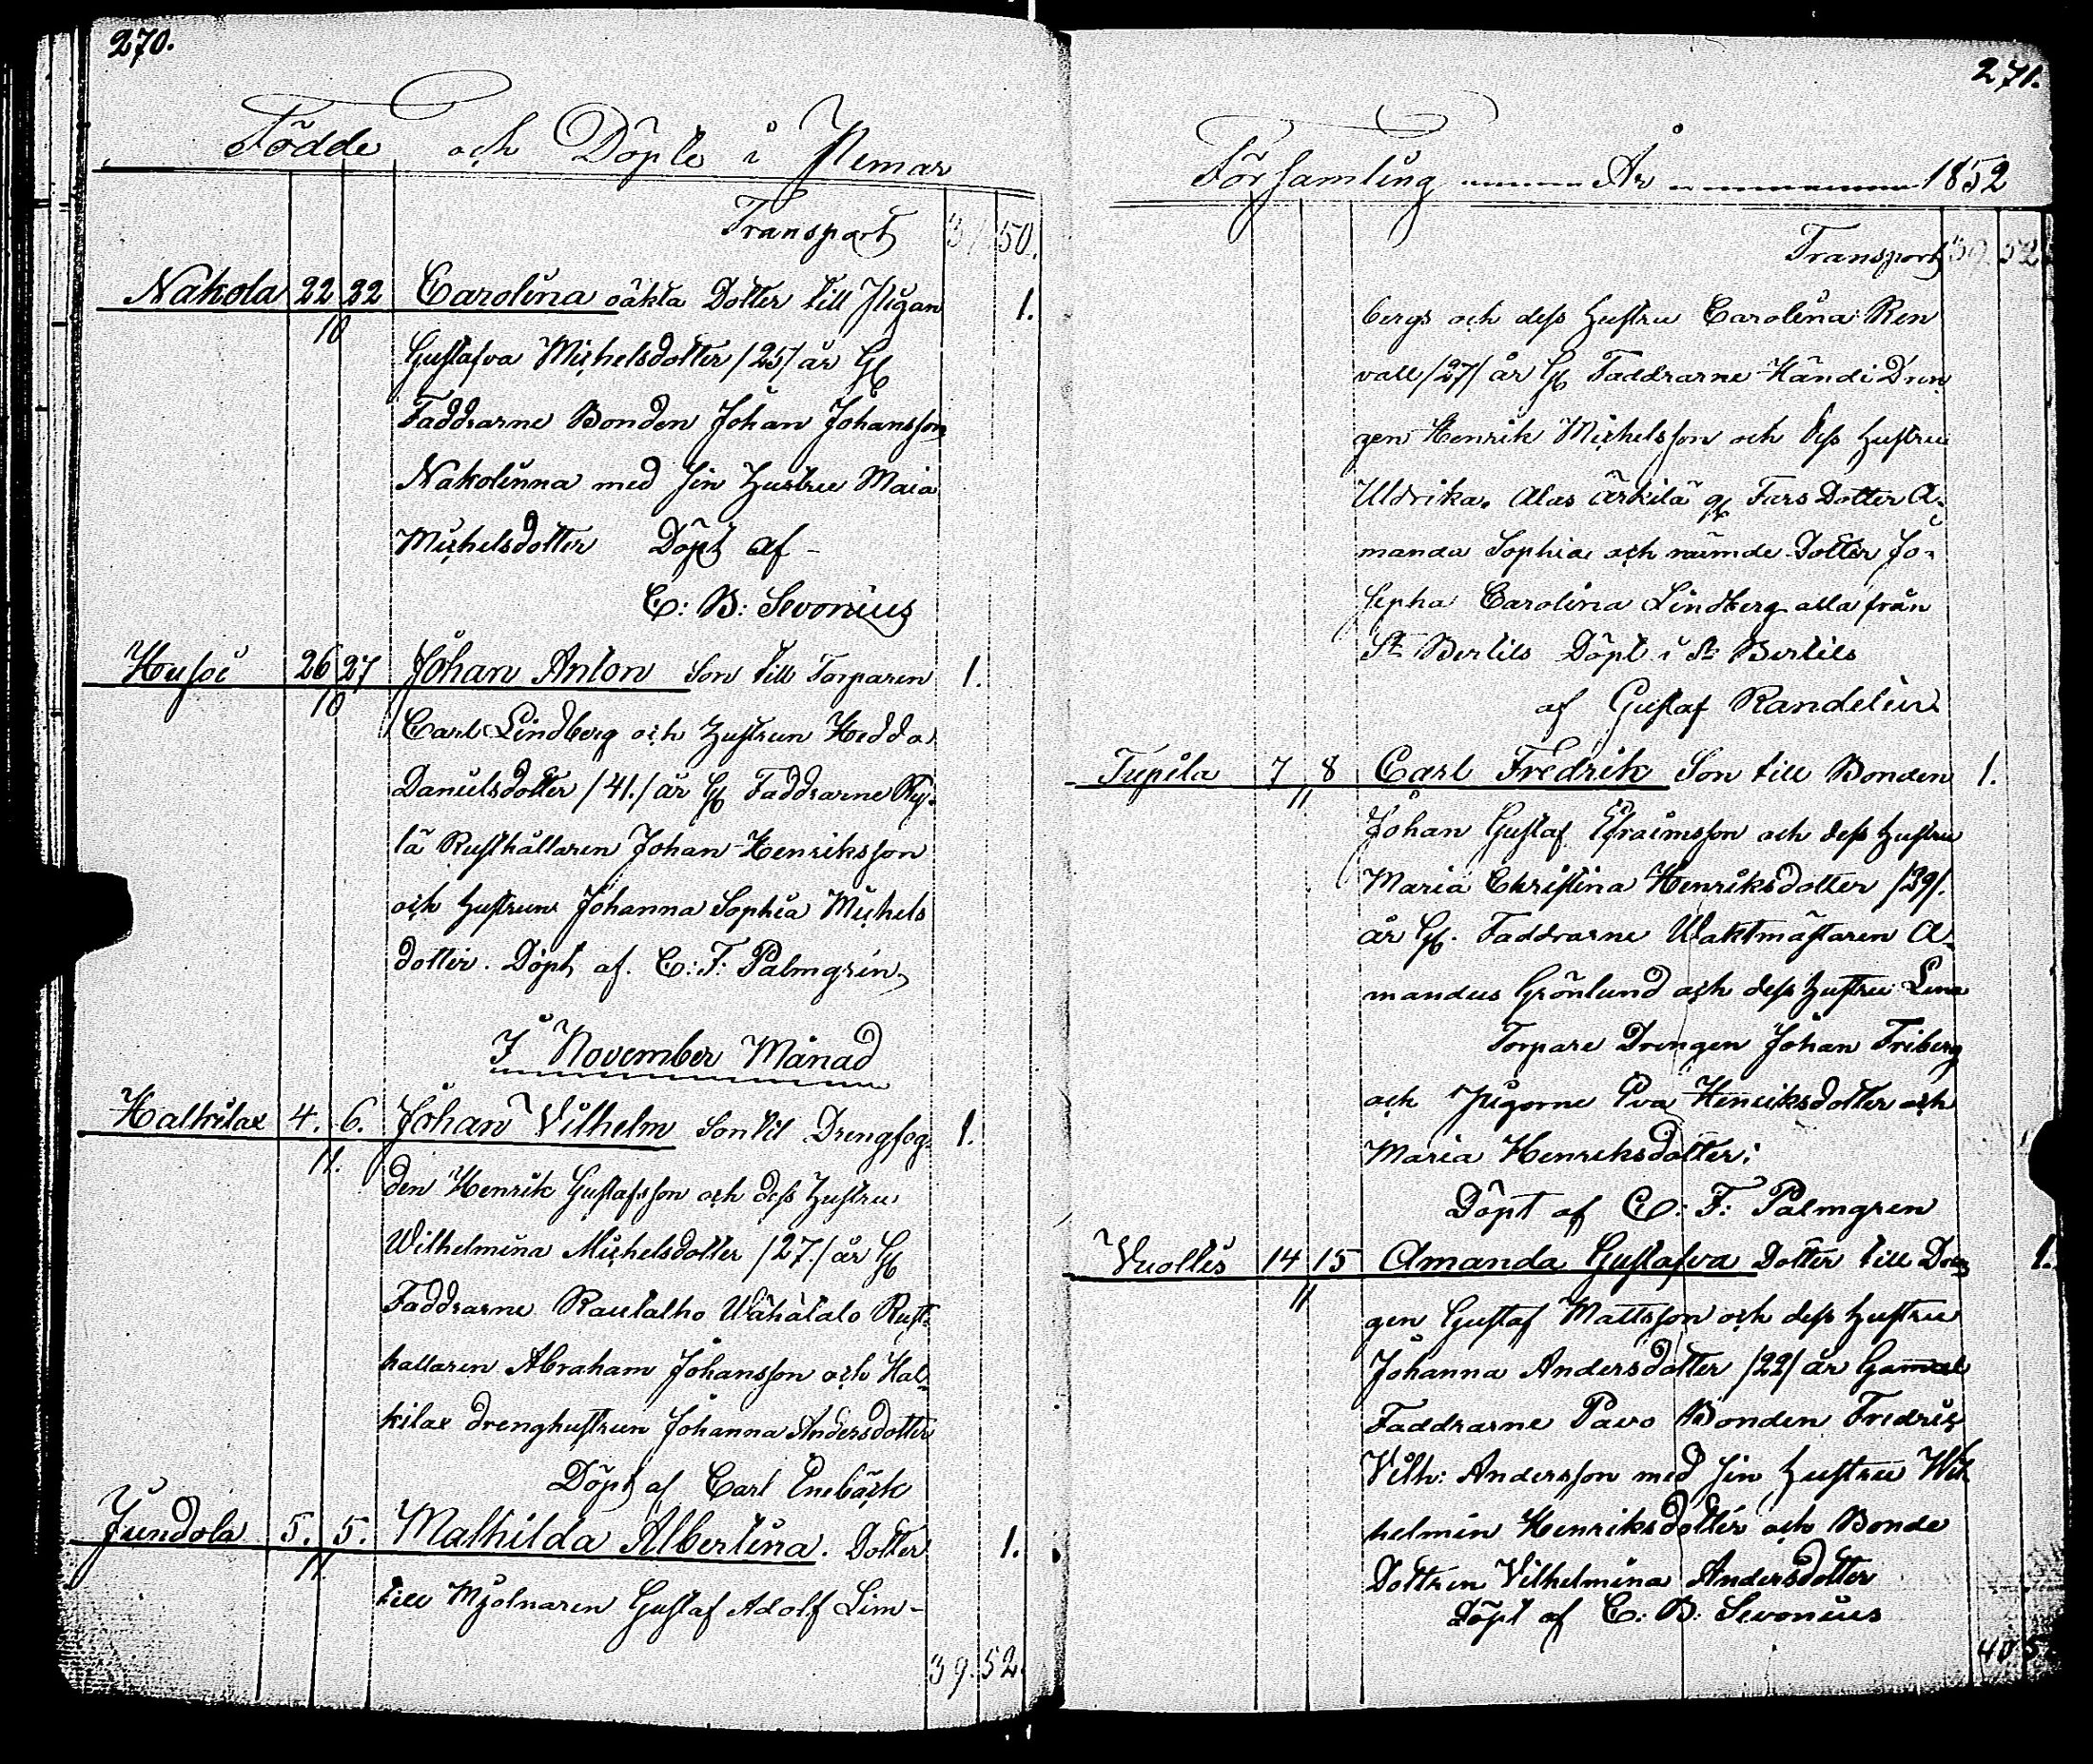 270.
Födde och Döpte i Pemar
Transport 37 50.
Nakola 22 22 Carolina oäkta Dotter till Pigan 1.
10
Gustafva Michelsdotter /25/ år G
Faddrarne Bonden Johan Johansson
Nakolinna med sin Hustru Maia
Michelsdotter Döpt af -
C: B: Sevonius
Husoi 26 27 Johan Anton Son till Torparen 1.
10
Carl Lindberg och Hustrun Hedda
Danielsdotter /41./ år G Faddrarne Ry-
lä Rusthållaren Johan Henriksson
och Hustrun Johanna Sophia Michels
dotter. Döpt af. C: F: Palmgrén
I November Månad
Halkilax 4. 6. Johan Vilhelm Son til Drengfog- 1.
11.
den Henrik Gustafsson och dess Hustru
Wilhelmina Michelsdotter /27./ år G
Faddrarne Rautalho Wähätalo Rust-
hållaren Abraham Johansson och Hal-
kilax drenghustrun Johanna Andersdotter
Döpt af Carl Enebäck
Jundola 5. 5. Mathilda Albertina. Dotter 1.
11.
till Mjölnaren Gustaf Adolf Lim-
39. 52.
271.
Församling År 1852
Transport 39. 52
bergs och dess Hustru Carolina Ren
vall /27/ år G Faddrarne Händi Dren
gen Henrik Michelsson och dess Hustru
Uldrika. Alas Ärkilä Fars Dotter A-
manda Sophia och nämde Dotter Jo-
sepha Carolina Lindberg alla från
St Bertils Döpt i St Bertils
af Gustaf Randelin
Tupila 7 8 Carl Fredrik Son till Bonden 1.
11
Johan Gustaf Efraimsson och dess Hustru
Maria Christina Henriksdotter /29/.
år G. Faddrarne Waktmästaren A-
mandus Grönlund och dess Hustru Lena
Torpare Drengen Johan Friberg
och Pigorne Eva Henriksdotter och
Maria Henriksdotter;
Döpt af C: F: Palmgren
Vuoltis 14 15 Amanda Gustafva Dotter till Dren 1.
11
gen Gustaf Mattsson och dess Hustru
Johanna Andersdotter /22/ år Gammal
Faddrarne Pavo Bonden Fredric
Vilh: Andersson med sin Hustru Wil
helmin Henriksdotter och Bonde
Dottren Vilhelmina Andersdotter
Döpt af C: B: Sevonius
40 5